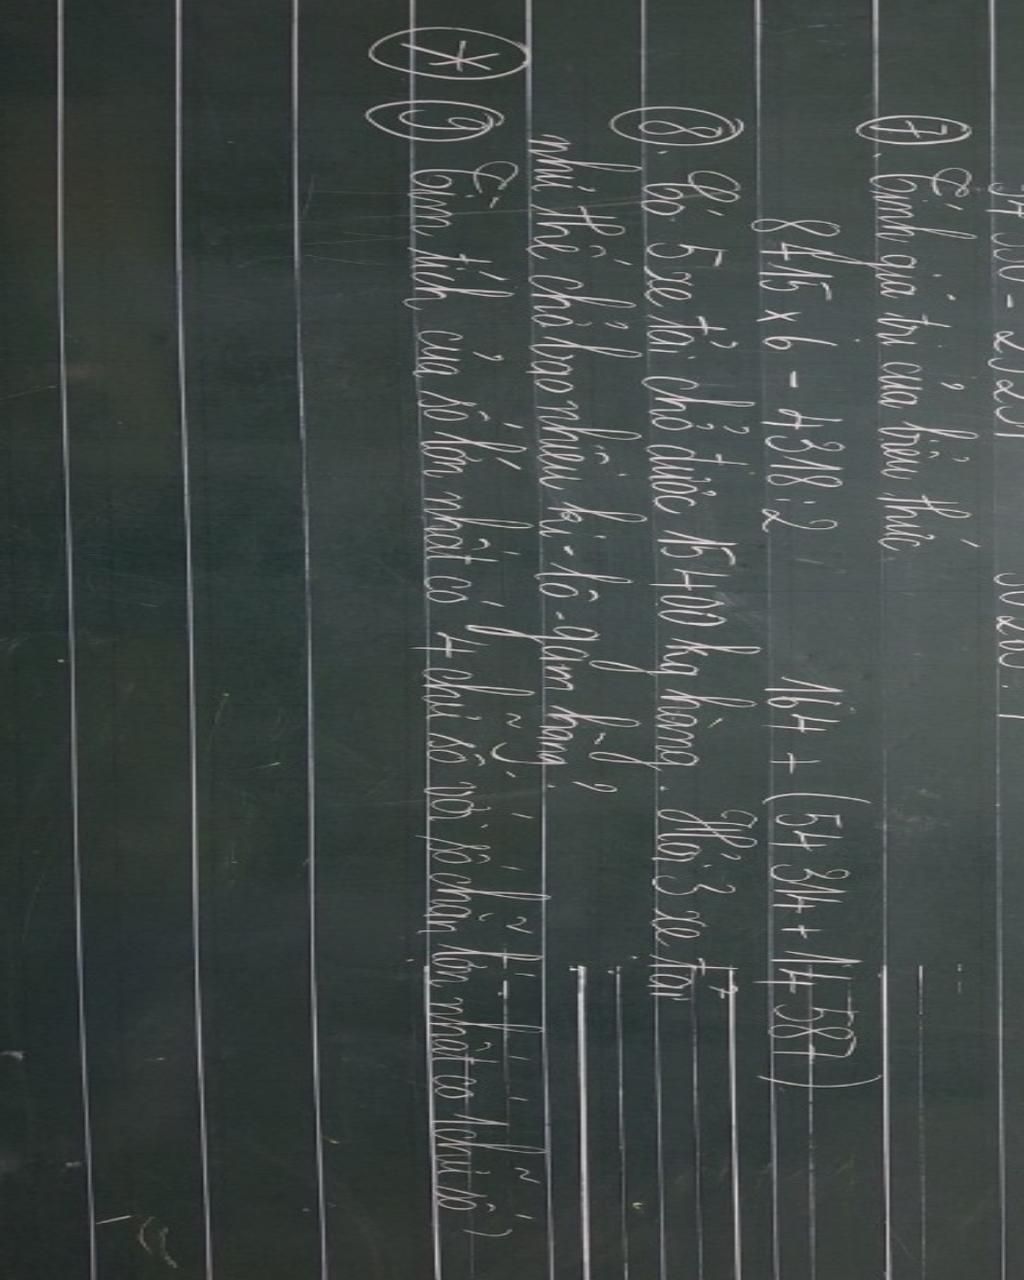 ⑦. Tính giá trị của biểu thức
8415 x 6 - 4318 : 2 164 + (54 314 + 14 587)
⑧. Có 5 xe tải chở được 15 400 kg hàng. Hỏi 3 xe tải
như thế chở bao nhiêu ki-lô-gam hàng?
* ⑨ Tìm tích của số lớn nhất có 4 chữ số với số chẵn lớn nhất có 1 chữ số?